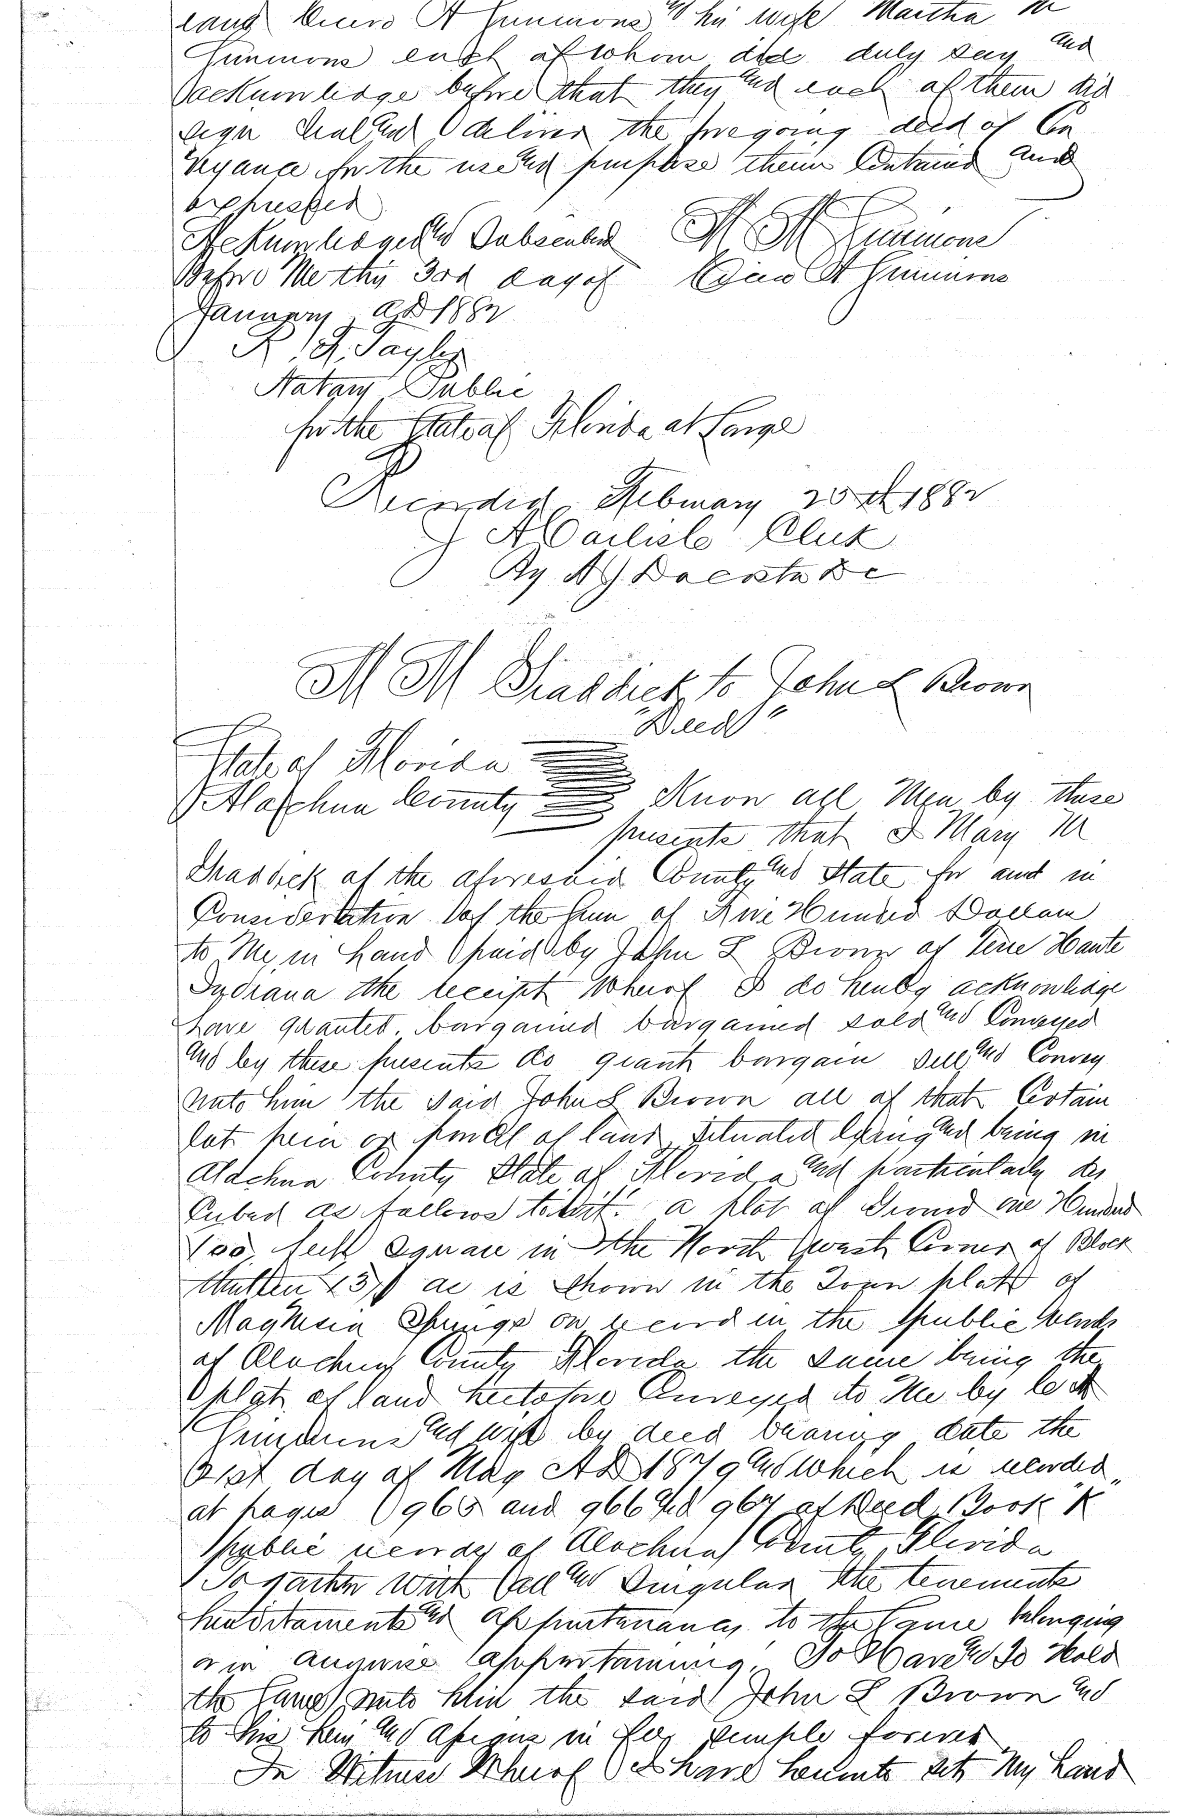 Cicero A Simmons and his wife Martha M
Simmons each of whom did duly say and
acknowledge before that they and each of them did
sign seal and deliver the foregoing deed of Con
veyance for the use and purpose therin Contained and
expressed
Acknowledged and Subscribed M M Simmons
Before Me this 3rd day of Cicero A Simmons
January AD 1882
Taylor
Notary Public
for the State of Florida at Large
Recorded February 25th 1882
J A Carlisle Clerk
By Dacosta DC
M M Shaddick to John L Brown
"Deed"
State of Florida
Alachua County Know all Men by these
presents that I Mary M
Shaddick of the aforesaid County and State for and in
Consideration of the Sum of Five Hundred Dollars
to Me in hand paid by John L Brown of Terre Haute
Indiana the receipt Wherof I do hereby acknowledge
have granted bargained bargained sold and Conveyed
and by these presents do grant bargain sell and Convey
unto him the said John L Brown all of that Certain
lot peice or parcell of land situated lying and being in
Alachua County State of Florida and particularly des
cribed as follows towit: a plot of Ground one Hundred
100 feet Square in the North West Corner of Block
thirteen 13 as is shown in the Town platt of
Magnesia Springs on record in the public records
of Alachua County Florida the same being the
plat of land heretofore Conveyed to Me by C A
Simmons and wife by deed bearing date the
31st day of May AD 1879 and which is recorded
at pages 965 and 966 and 967 of Deed Book "K"
public records of Alachua County Florida
Togather With all and Singular the tenements
hereditaments and appurtenances to the Same belonging
or in anywise appertaining To Have and To Hold
the Same unto him the said John L Brown and
to his heirs and assigns in fee simple forever
In Witness Wherof I have hereunto set My hand